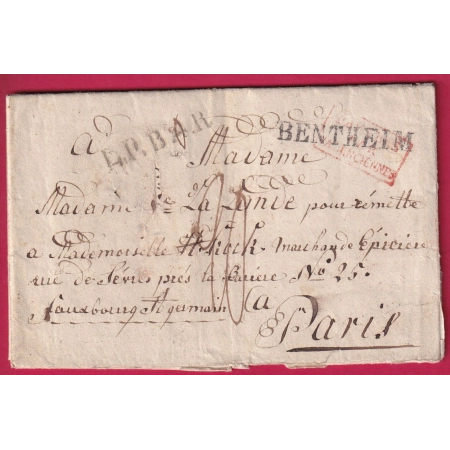 L.P.B.2.R
BENTHEIM
VALENCIENNES
a
Madame
Madame La Lande pour rémettre
a Mademoiselle Hock Marchande Epiciere
rue de Sévres prés la Bariere No 25.
fauxbourg St germain
a
Paris